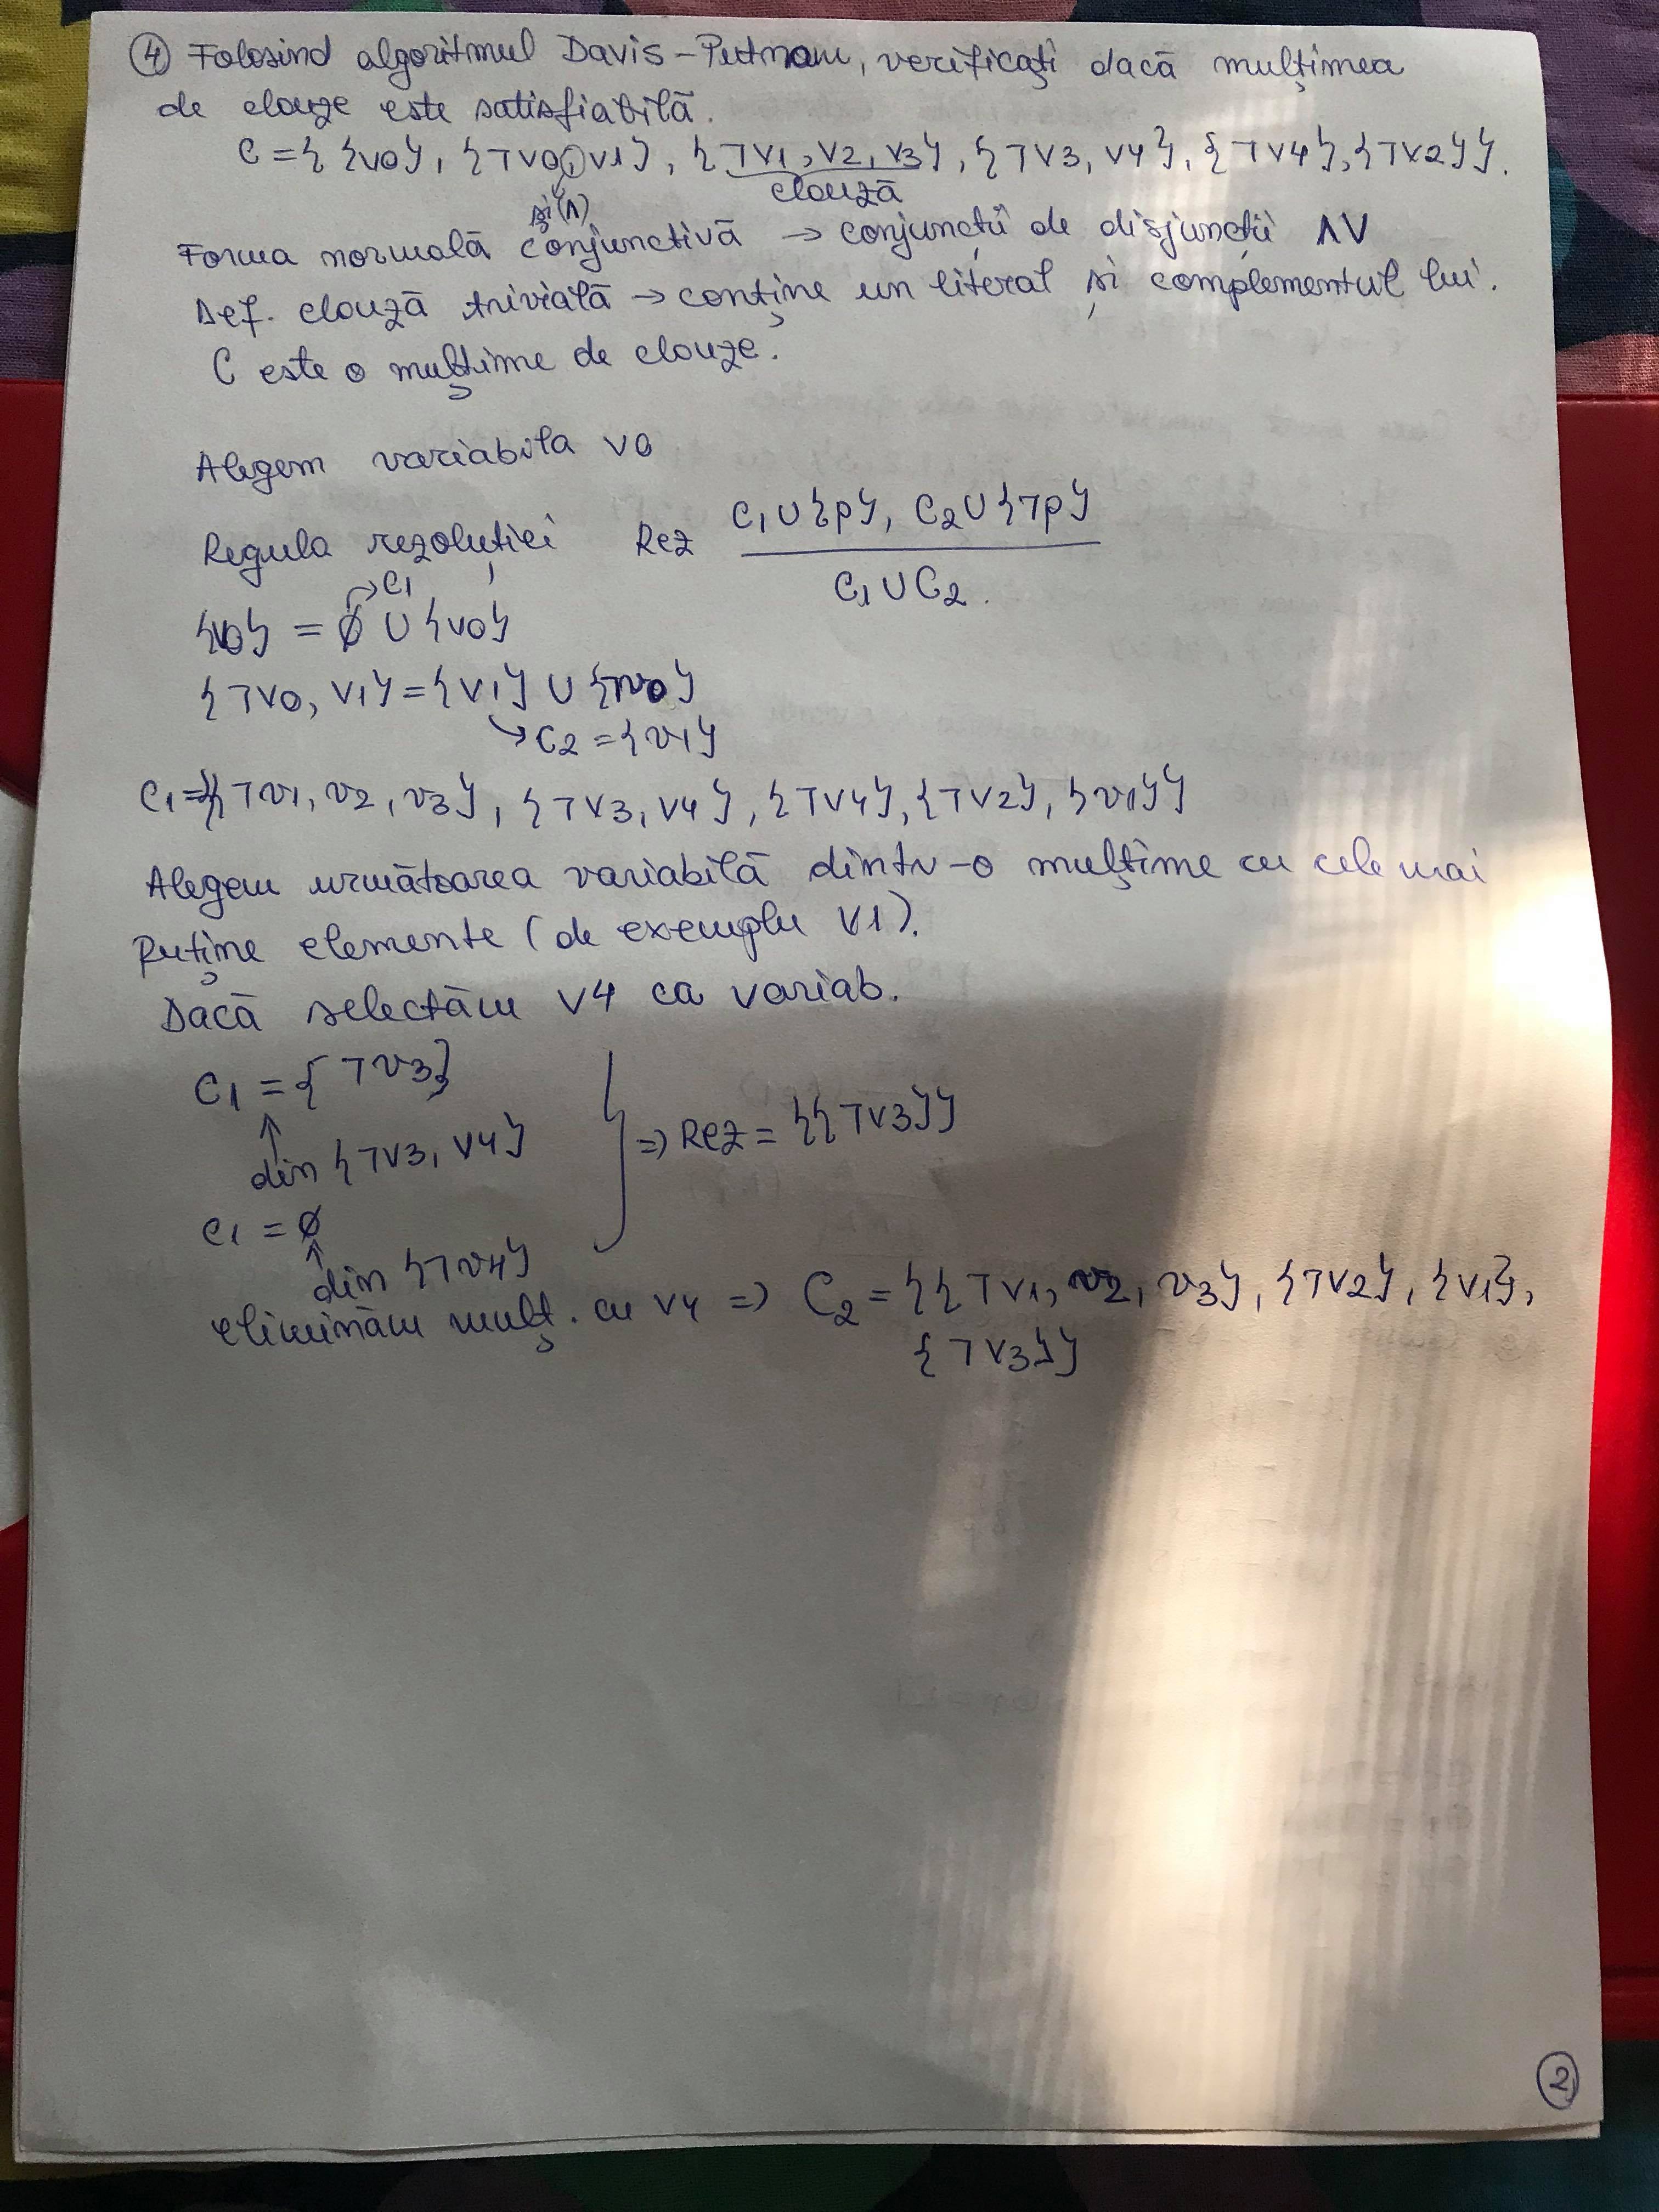 ④ Folosind algoritmul Davis-Putnam, verificați dacă mulțimea
de clauze este satisfiabilă.
C = { {v0}, {¬v0, v1}, {¬v1, v2, v3}, {¬v3, v4}, {¬v4}, {¬v2}}.
clauză
și (∧)
Forma normală conjunctivă → conjuncții de disjuncții ∧∨
Def. clauză trivială → conține un literal și complementul lui.
C este o mulțime de clauze.
Alegem variabila v0
Regula rezoluției Rez C1∪{p}, C2∪{¬p}
C1∪C2.
→C1
{v0} = ∅ ∪ {v0}
{¬v0, v1} = {v1} ∪ {¬v0}
↳ C2 = {v1}
C1={{¬v1, v2, v3}, {¬v3, v4}, {¬v4}, {¬v2}, {v1}}
Alegem următoarea variabilă dintr-o mulțime cu cele mai
puține elemente (de exemplu v1).
Dacă selectăm v4 ca variab.
C1 = {¬v3}
↑
din {¬v3, v4}
⇒ Rez = {{¬v3}}
C1 = ∅
↑
din {¬v4}
eliminăm mulț. cu v4 ⇒ C2 = {{¬v1, v2, v3}, {¬v2}, {v1},
{¬v3}}
②